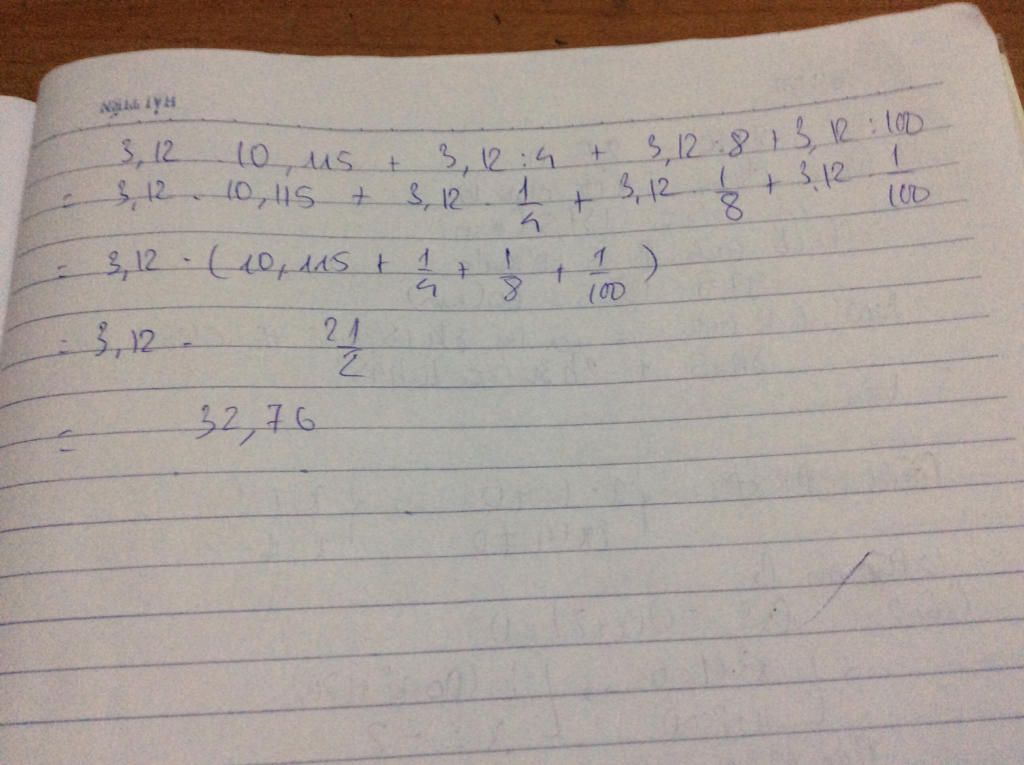 HẢI TIẾN
3,12 . 10,115 + 3,12 : 4 + 3,12 : 8 + 3,12 : 100
= 3,12 . 10,115 + 3,12 . 1/4 + 3,12 . 1/8 + 3,12 . 1/100
= 3,12 . ( 10,115 + 1/4 + 1/8 + 1/100 )
= 3,12 . 21/2
= 32,76